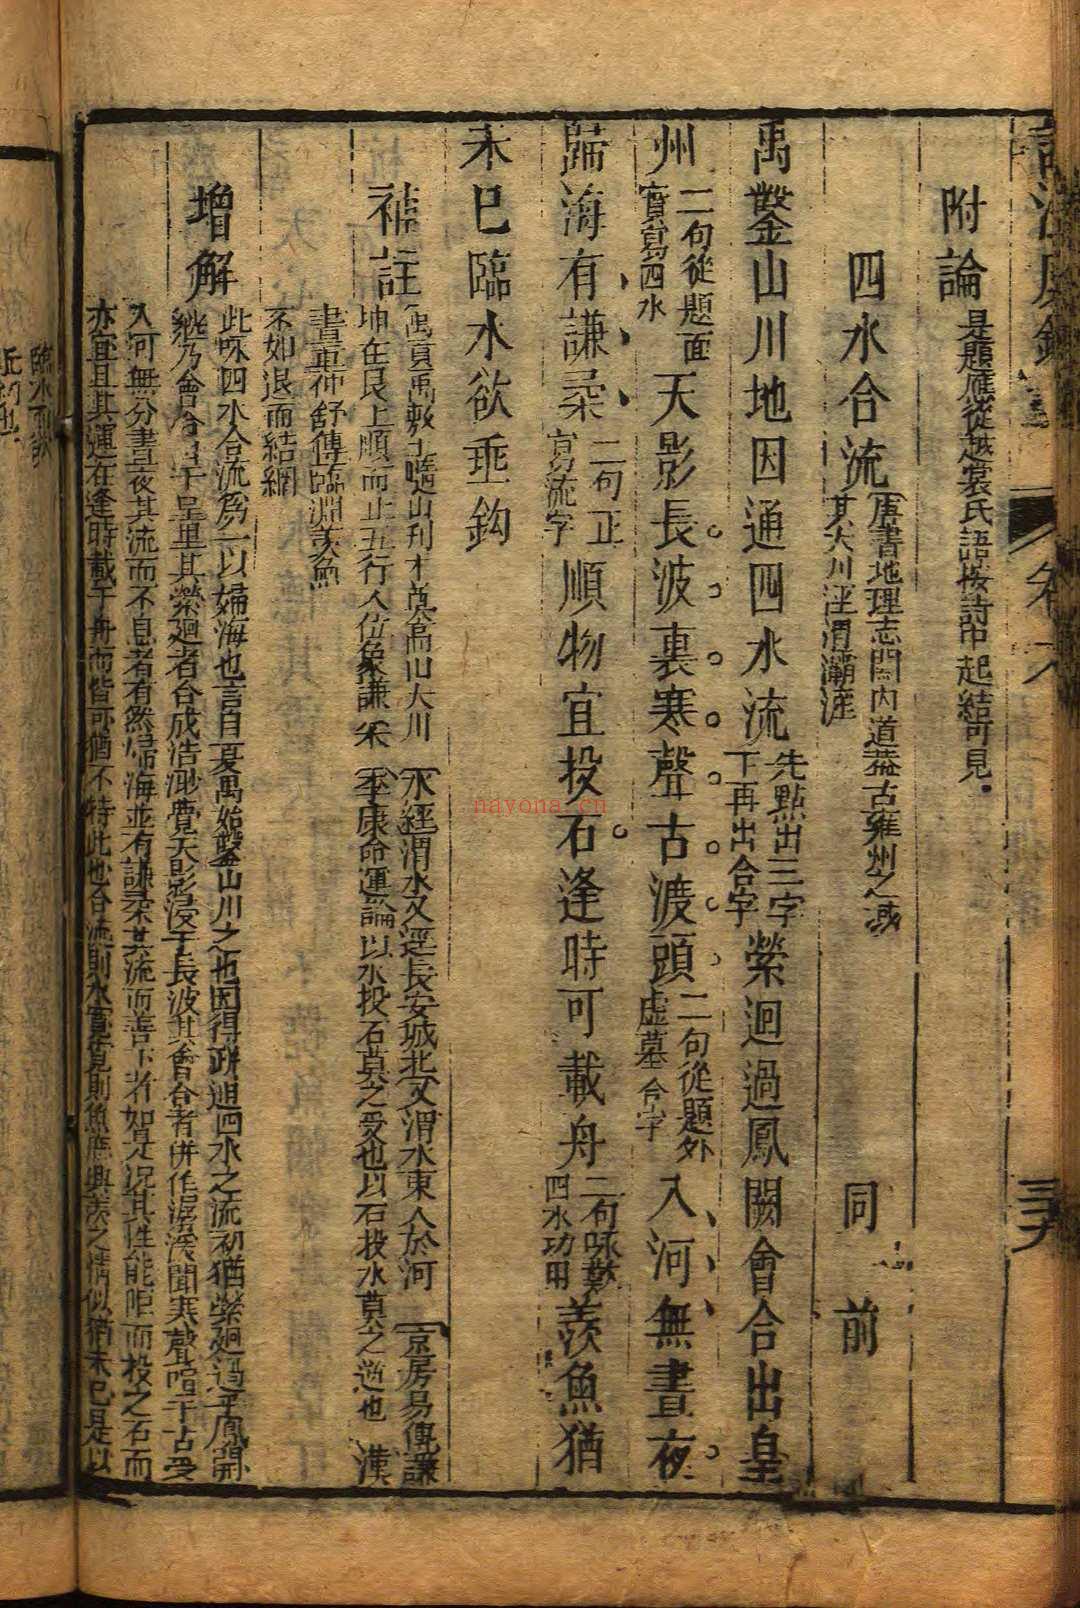 附論 是題應從越裳氏語按詩中起結可見
四水合流 唐書地理志關內道葢古雍州之域其大川涇渭灞滻 同前
禹鑿山川地因通四水流 先點出三字下再出合字 縈迴過鳳闕會合出皇
州 二句從題面實寫四水 天影長波裏寒聲古渡頭 二句從題外虛摹合字 入河無晝夜
歸海有謙柔 二句正寫流字 順物宜投石逢時可載舟 二句咏歎四水功用 羨魚猶
未已臨水欲垂鈎
補註 禹貢禹敷土隨山刊木奠高山大川 水經渭水又逕長安城北又渭水東入於河 京房易傳謙
坤在艮上順而止五行入位象謙柔 李康命運論以水投石莫之受也以石投水莫之逆也 漢
書董仲舒傳臨淵羨魚
不如退而結網
增解 此咏四水合流爲一以歸海也言自夏禹始鑿山川之也因得疏通四水之流初猶縈廻過乎鳳闕
繼乃會合出乎皇里其縈廻者合成浩渺覺天影浸于長波其會合者併作潺湲聞寒聲喧于古渡
入河無分晝夜其流而不息者有然歸海並有謙柔其流而善下者如是况其性能順而投之石而
亦宜且其運在逢時載于舟而皆可猶不特此也合流則水寬寬則魚應興羨之情似猶未已是以
三六
臨水而欲
nayona.cn